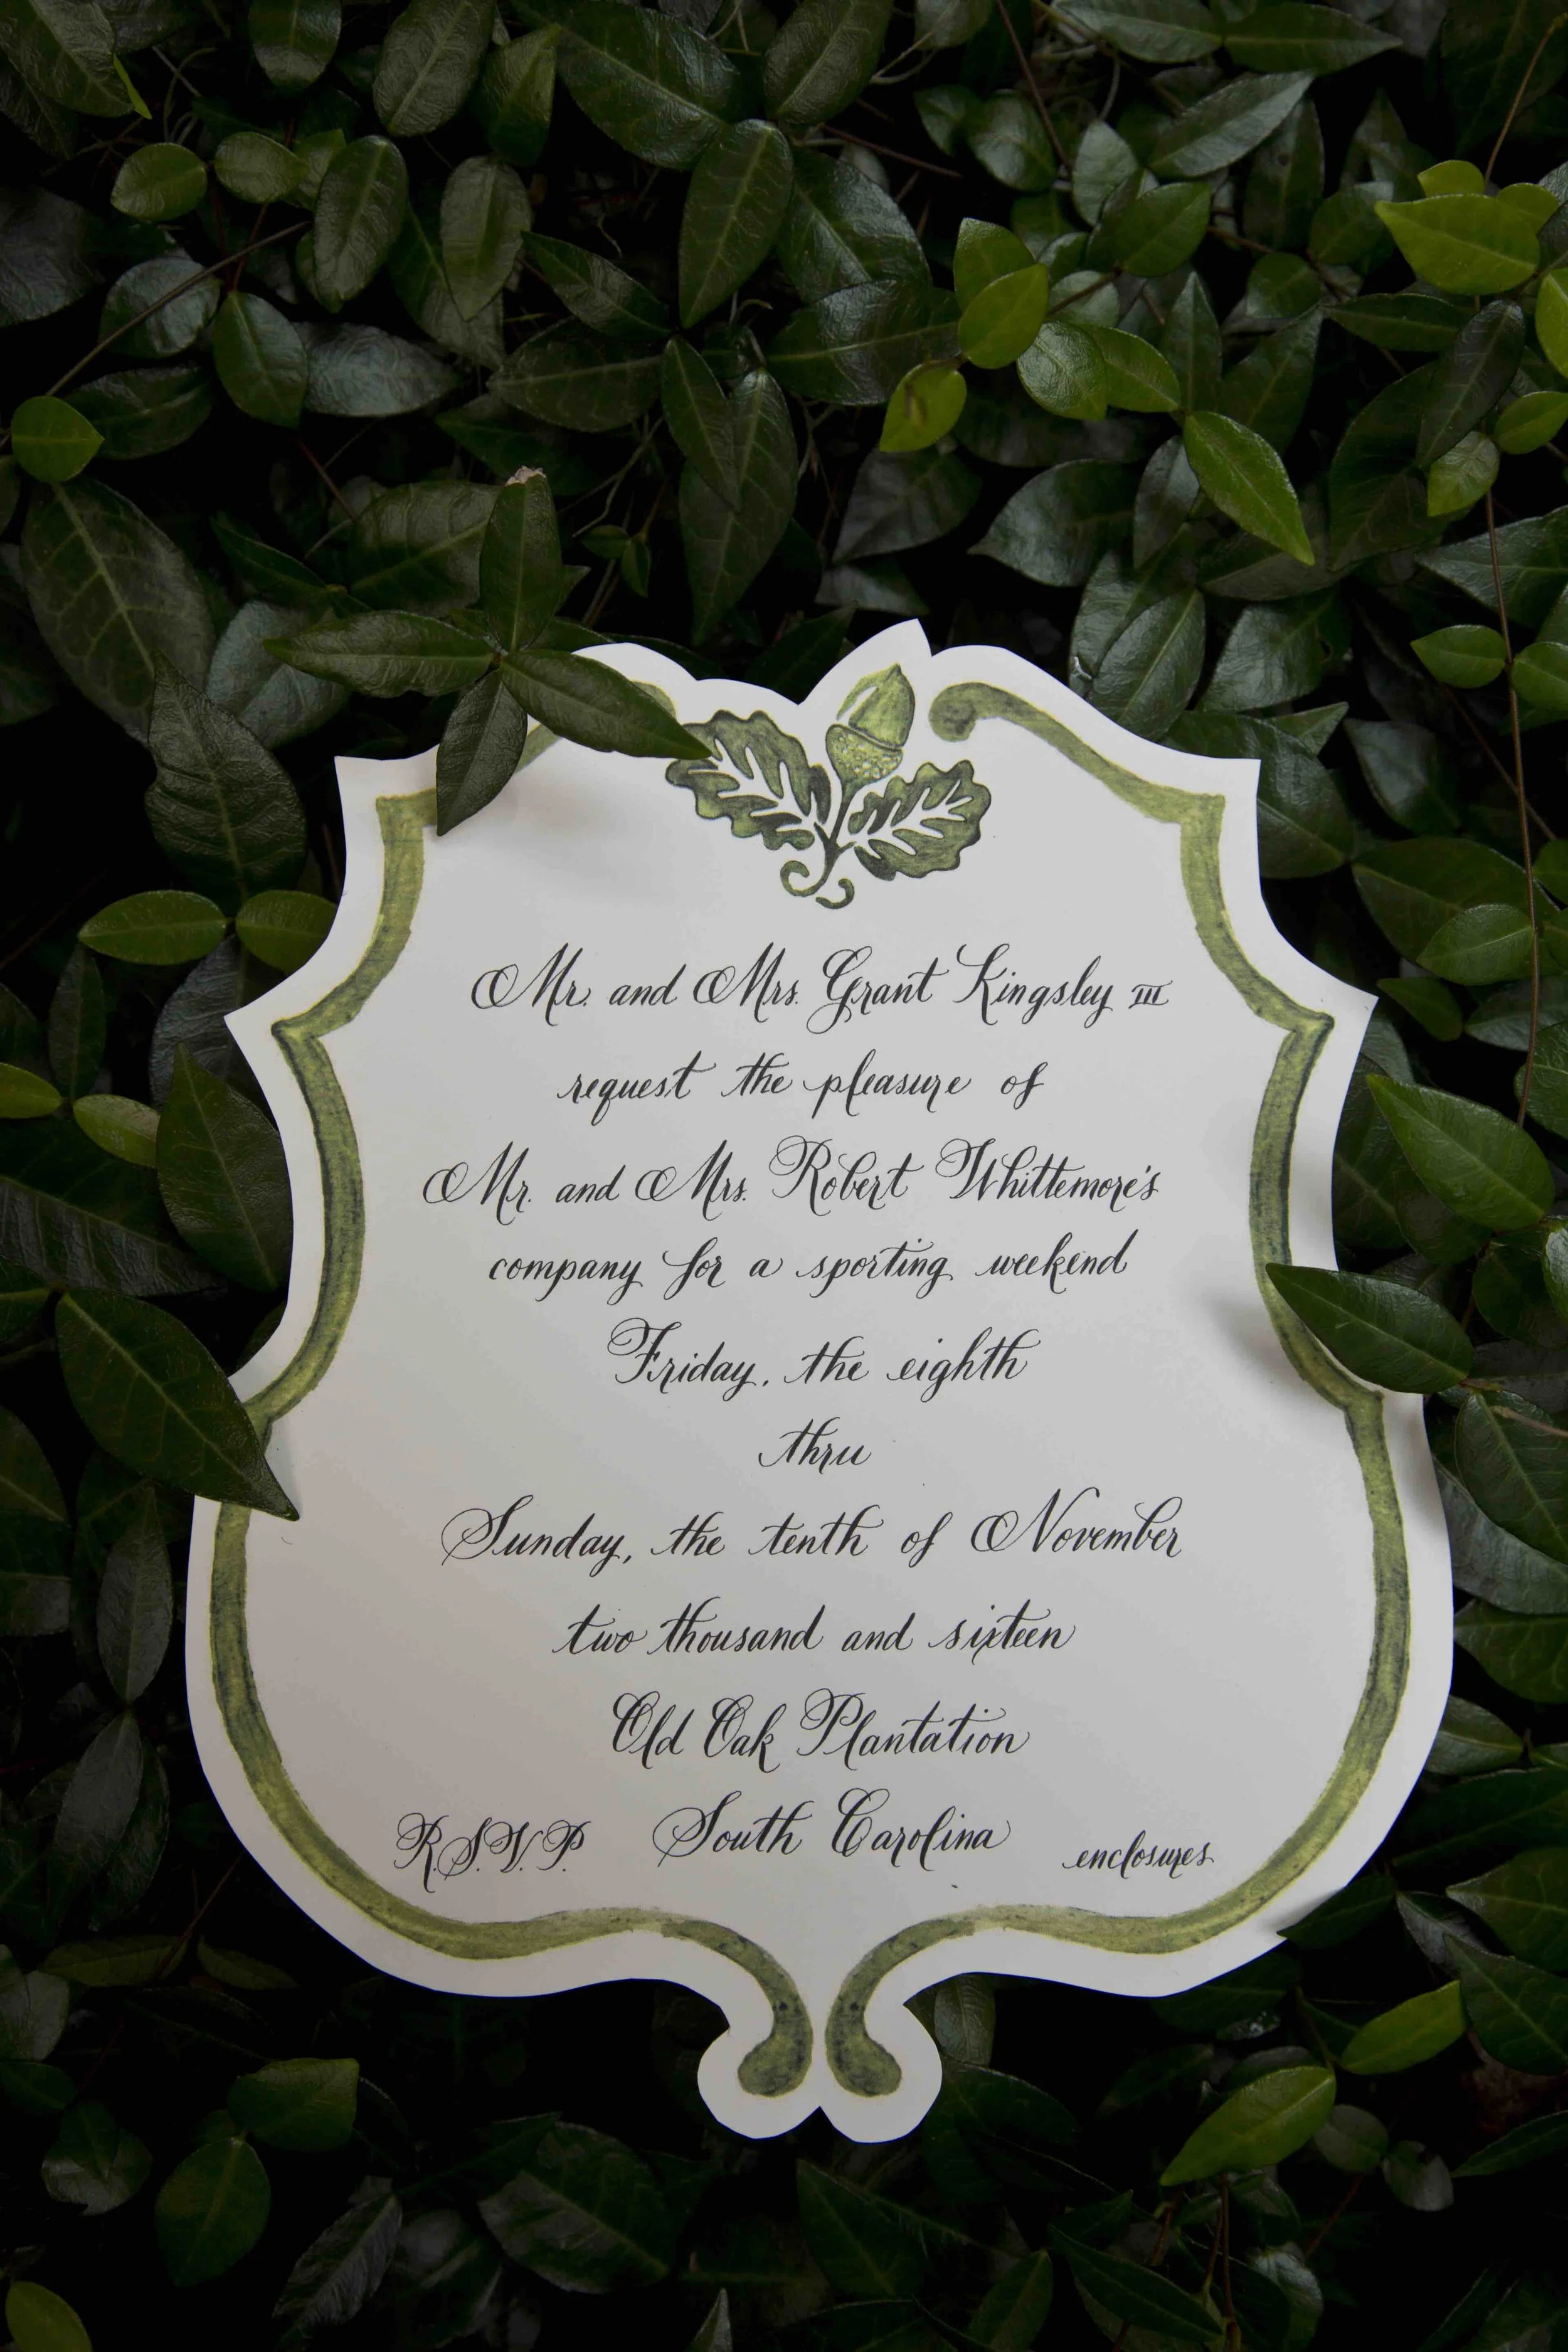 Mr. and Mrs. Grant Kingsley III
request the pleasure of
Mr. and Mrs. Robert Whittemore's
company for a sporting weekend
Friday, the eighth
thru
Sunday, the tenth of November
two thousand and sixteen
Old Oak Plantation
South Carolina
R.S.V.P.
enclosures